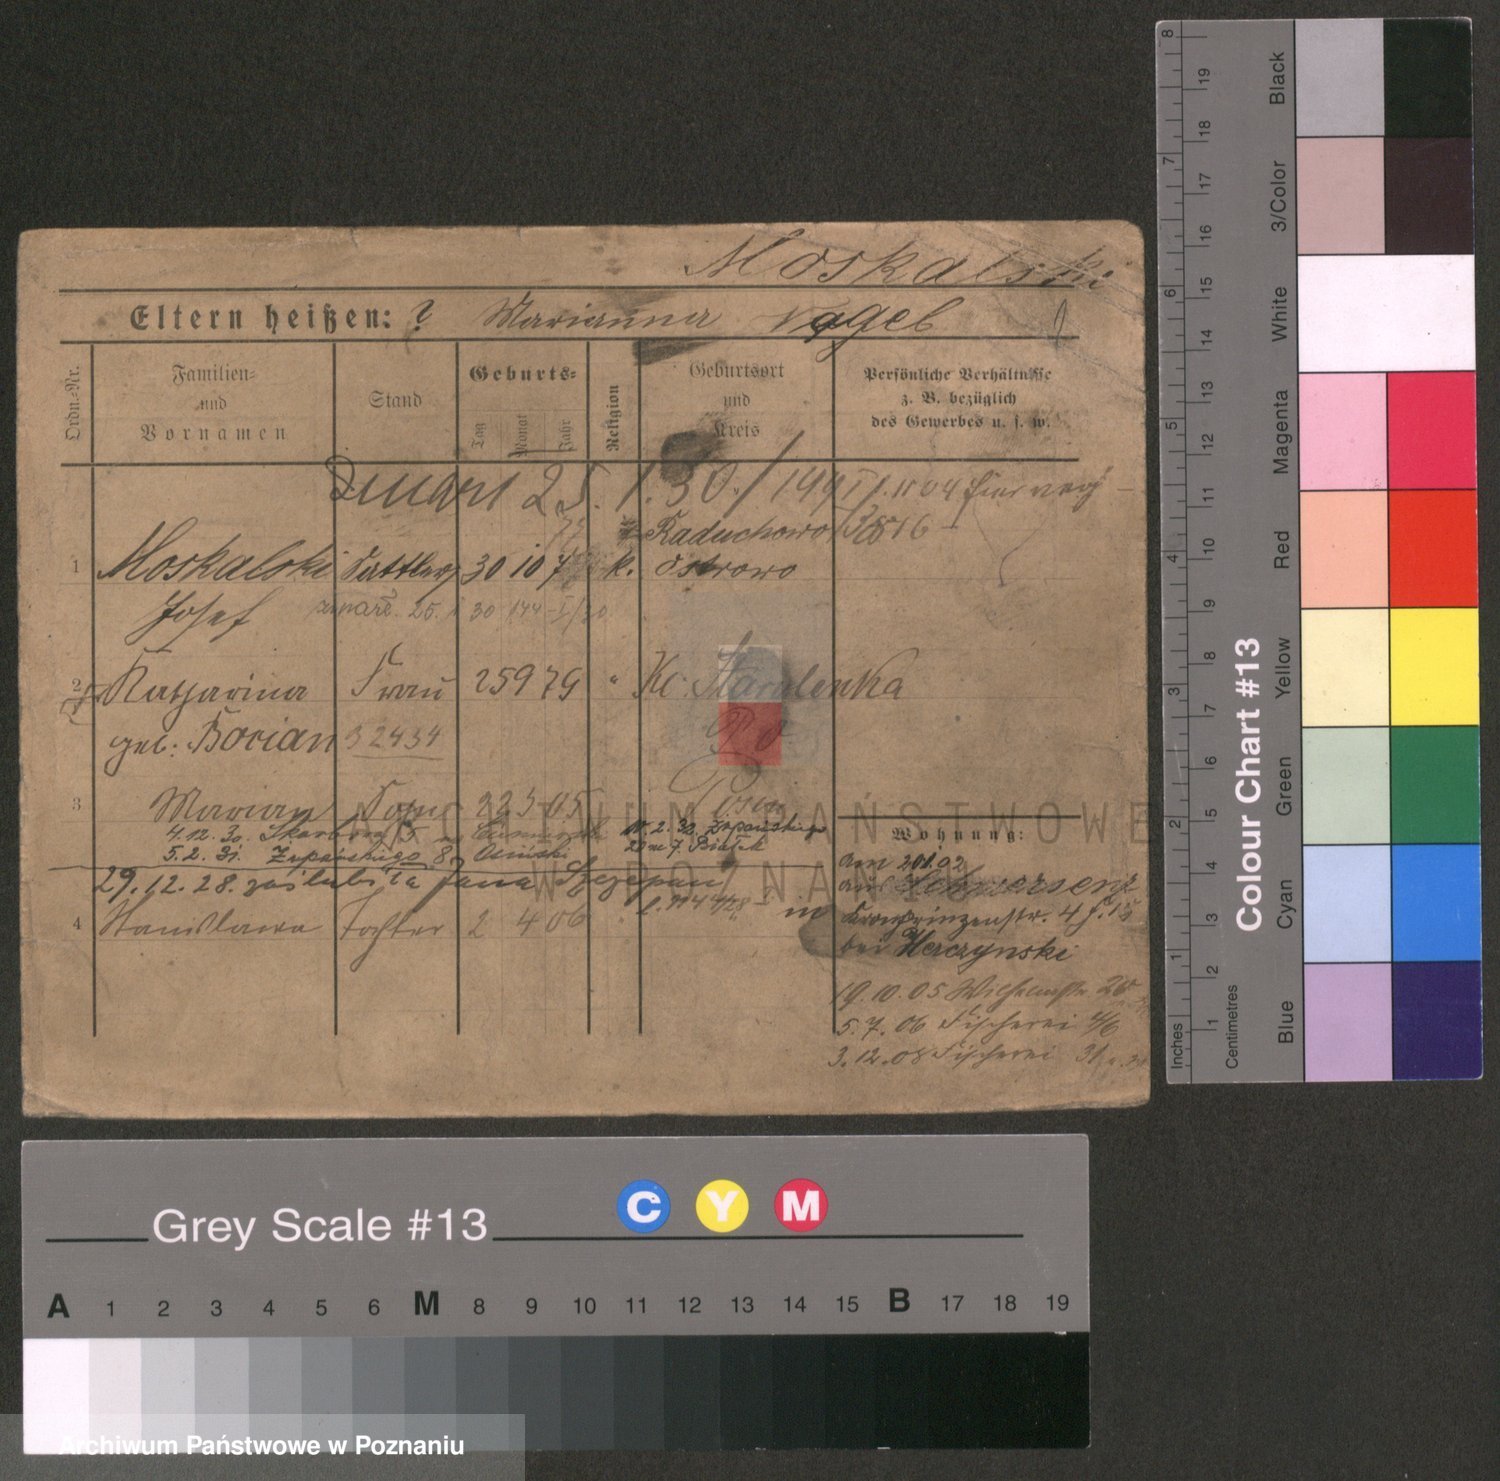 Moskalski
Eltern heißen: ? Marianna Vogel
Ordn.-Nr.
Familien- und Vornamen
Stand
Geburts-
Tag Monat Jahr
Religion
Geburtsort und Kreis
Persönliche Verhältnisse z. B. bezüglich des Gewerbes u. s. w.
25. 1. 30.
Raduchowo
1 Moskalski Sattler 30 10 k. Ostrowo
Josef zmarł. 25. 30 144
2 Katharina Frau 25 9 79 " Kl. Starolenka
geb: Bocian 32434
Po
3 Marian Sohn 22 5 05 Posen
4.12.30. Skarbowa 15
5.2.31. 8 Osiński
29.12.28. zaślubiła Jana Szczepan
4 Stanislawa Tochter 2 4 06 "
Wohnung:
am 20.1.02
aus Schwersenz
in Kronprinzenstr. 4
bei Herczynski
19.10.05 Wilhelmstr. 26
5.7.06 Fischerei 4/6
3.12.08 Fischerei 31
ARCHIWUM PAŃSTWOWE
W POZNANIU
Colour Chart #13
Black
3/Color
White
Magenta
Red
Yellow
Green
Cyan
Blue
Inches
1 2 3 4 5 6 7 8
Centimetres
1 2 3 4 5 6 7 8 9 10 11 12 13 14 15 16 17 18 19
Grey Scale #13
C Y M
A 1 2 3 4 5 6 M 8 9 10 11 12 13 14 15 B 17 18 19
Archiwum Państwowe w Poznaniu